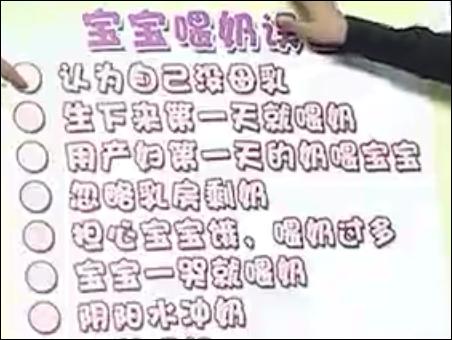 宝宝喂奶误
认为自己没母乳
生下来第一天就喂奶
用产妇第一天的奶喂宝宝
忽略乳房剩奶
担心宝宝饿、喂奶过多
宝宝一哭就喂奶
阴阳水冲奶